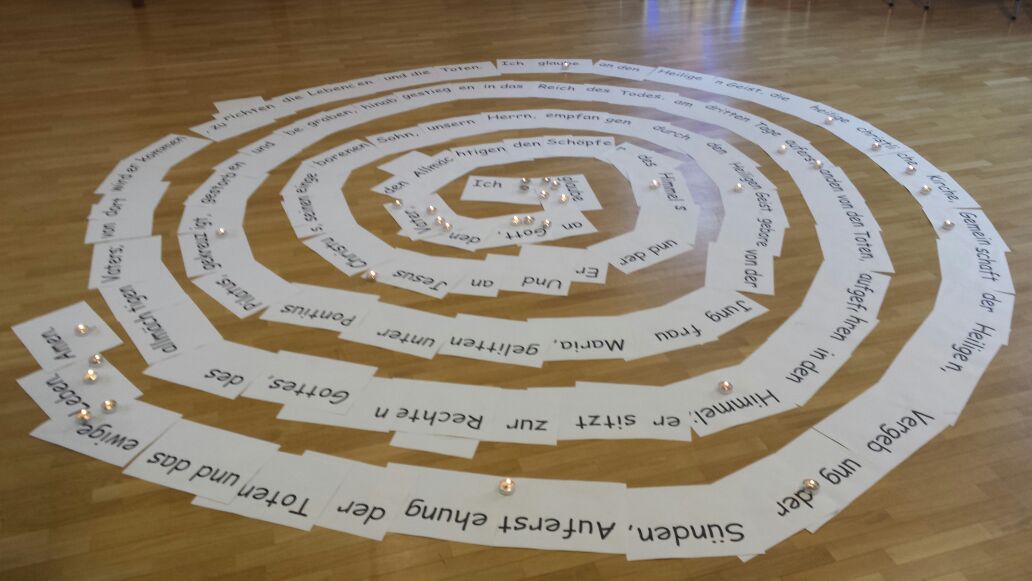 Ich glaube an Gott, den Vater, den Allmächtigen den Schöpfe das Himmels und der Er Und an Jesus Christus seinen eingeborenen Sohn, unsern Herrn, empfangen durch den Heiligen Geist gebore von der Jungfrau Maria, gelitten unter Pontius Pilatus, gekreuzigt, gestorben und begraben, hinabgestiegen in das Reich des Todes, am dritten Tage auferstanden von den Toten, aufgefhren in den Himmel; er sitzt zur Rechten Gottes, des allmächtigen Vaters; von dort wird er kommen zu richten die Lebenden und die Toten. Ich glaube an den Heiligen Geist, die heilige christliche Kirche, Gemeinschaft der Heiligen, Vergebung der Sünden, Auferstehung der Toten und das ewige Leben. Amen.